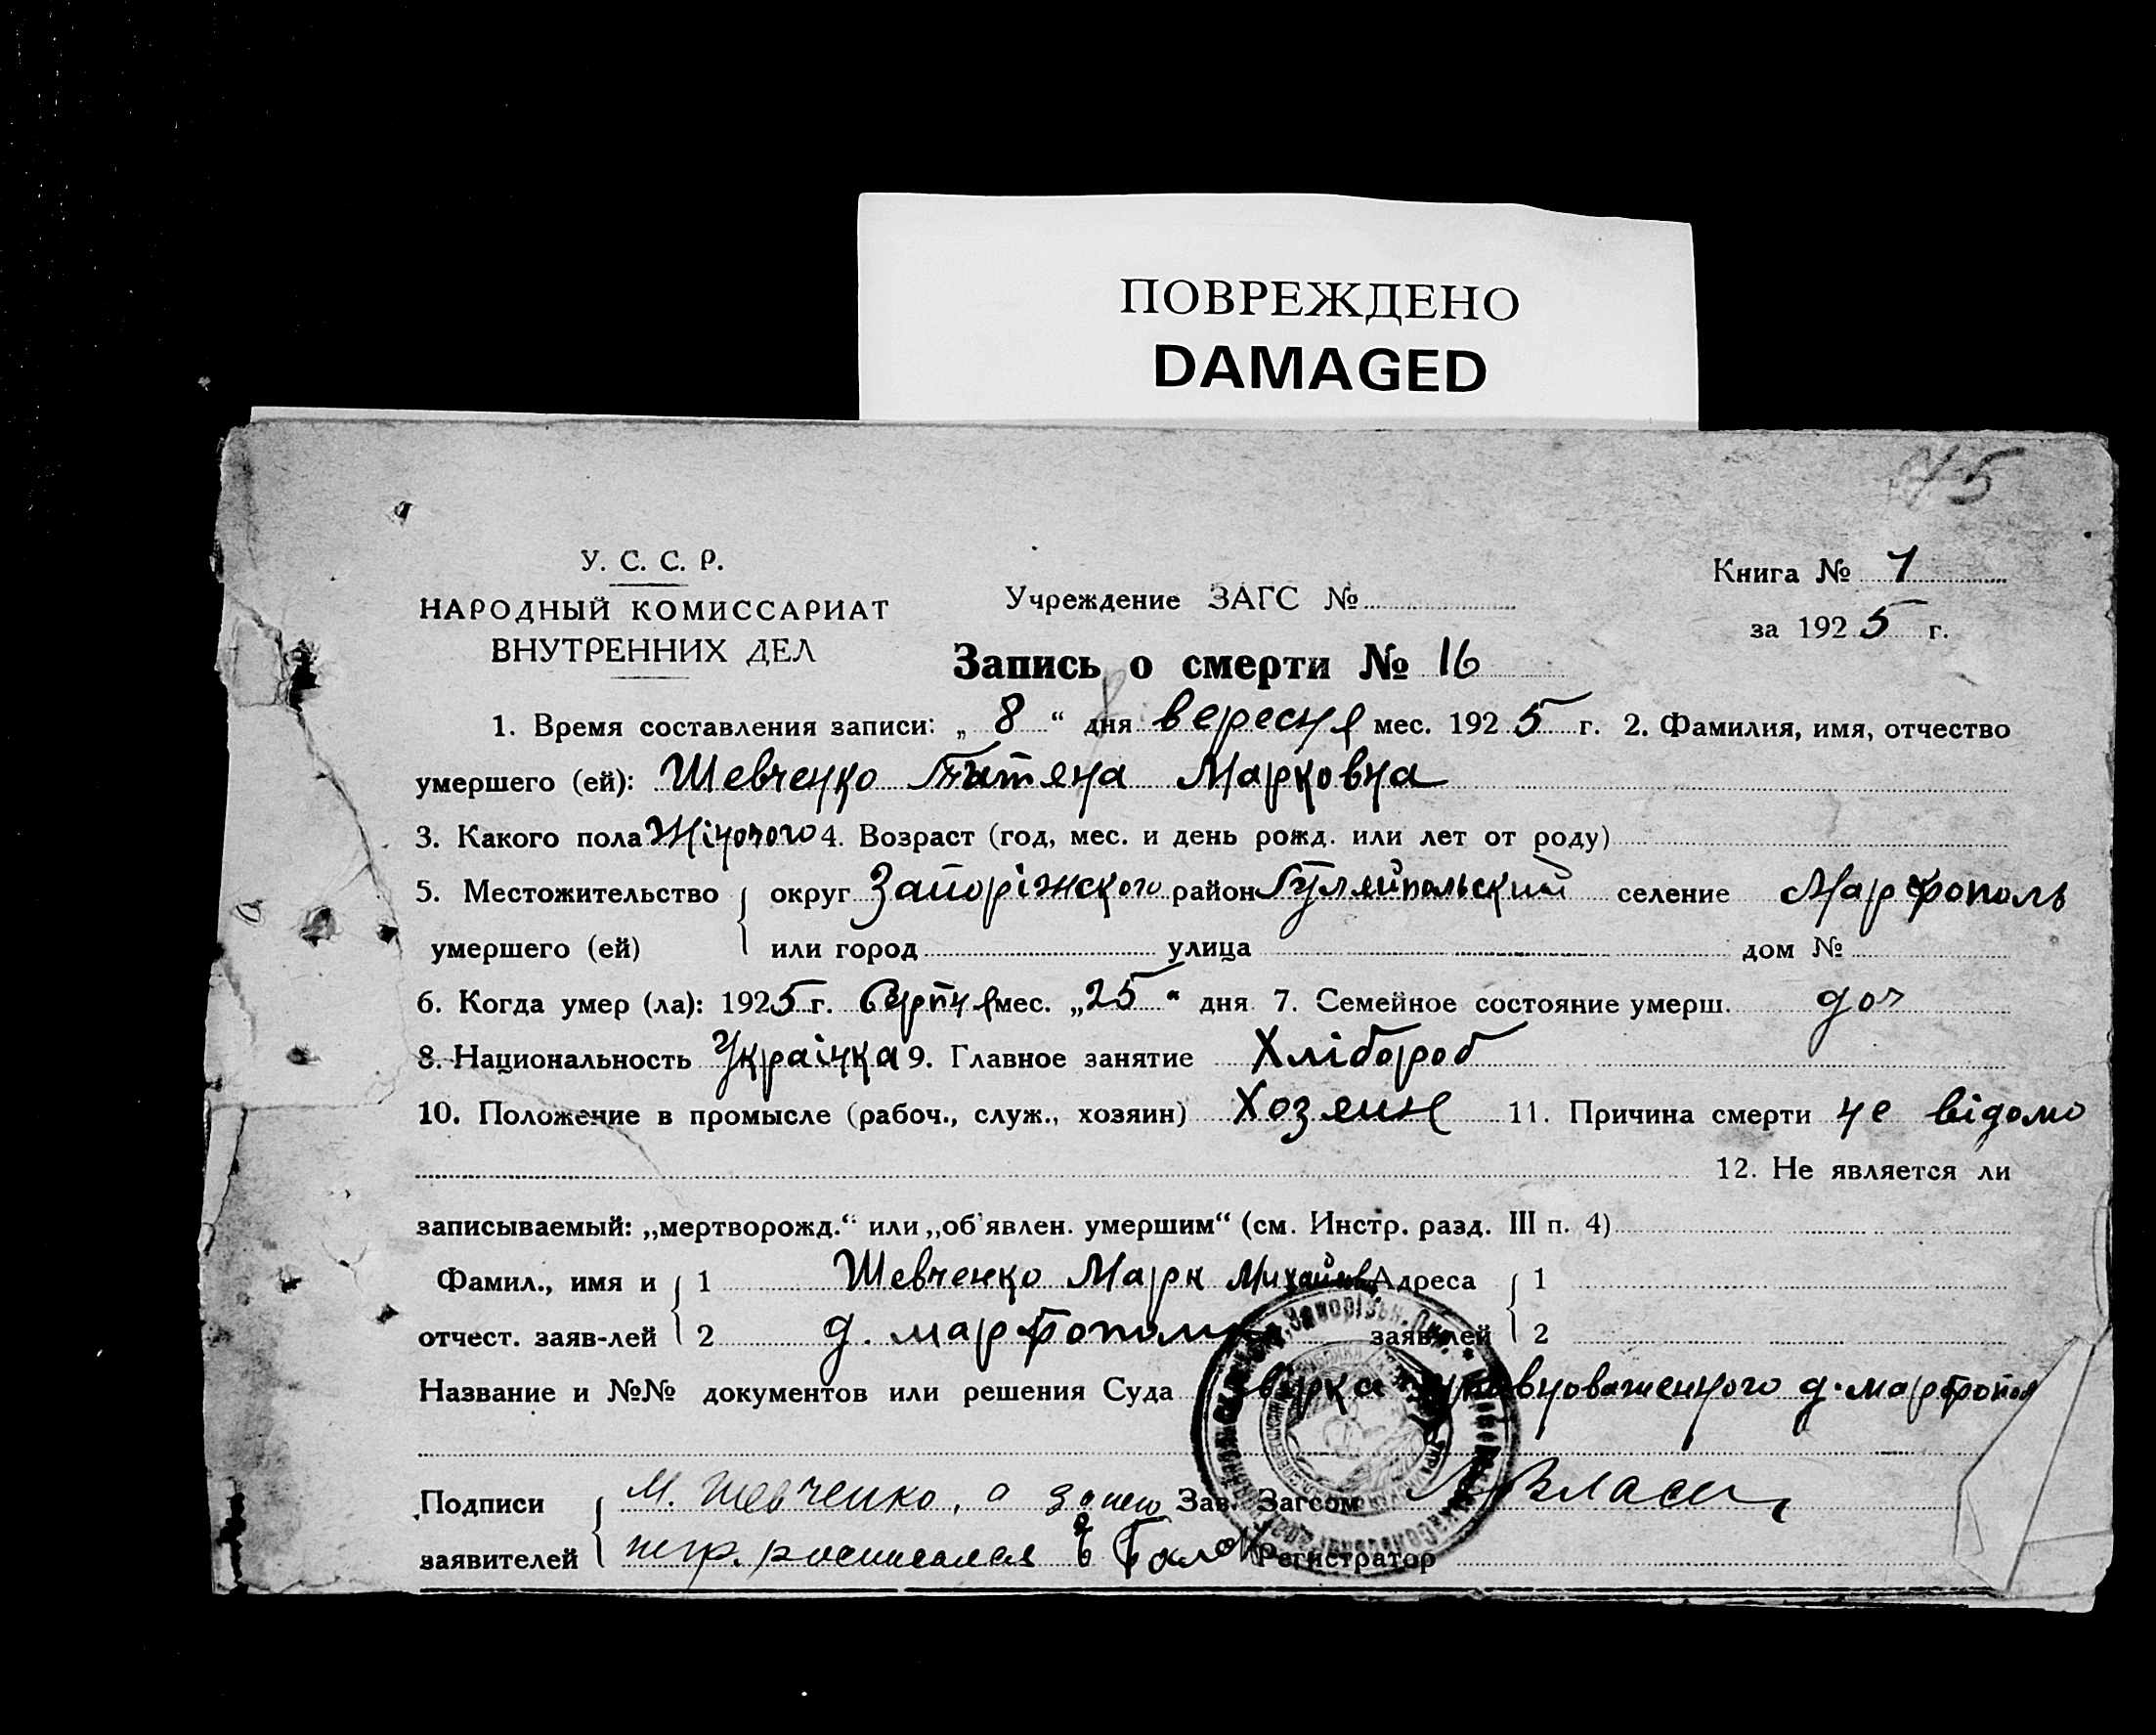 ПОВРЕЖДЕНО
DAMAGED
75
У. С. С. Р.
НАРОДНЫЙ КОМИССАРИАТ
ВНУТРЕННИХ ДЕЛ
Учреждение ЗАГС №
Книга № 1
за 1925 г.
Запись о смерти № 16
1. Время составления записи: „ 8 “ дня вересня мес. 1925 г. 2. Фамилия, имя, отчество
умершего (ей): Шевченко Татяна Марковна
3. Какого пола Жіночого 4. Возраст (год, мес. и день рожд. или лет от роду)
5. Местожительство округ Запоріжского район Гуляйпольский селение Марфополь
умершего (ей) или город улица дом №
6. Когда умер (ла): 1925 г. Серпня мес. „25“ дня 7. Семейное состояние умерш. доч
8. Национальность Украінка 9. Главное занятие Хлібороб
10. Положение в промысле (рабоч., служ., хозяин) Хозяин 11. Причина смерти не відомо
12. Не является ли
записываемый: „мертворожд.“ или „об'явлен. умершим“ (см. Инстр. разд. III п. 4)
Фамил., имя и 1 Шевченко Марк Михайлов Адреса 1
отчест. заяв-лей 2 д. марфополь заявлей 2
Название и №№ документов или решения Суда уповноваженного д. марфопол
Подписи М. Шевченко, а Зав. Загсом Власен
заявителей негр. росписался Регистратор